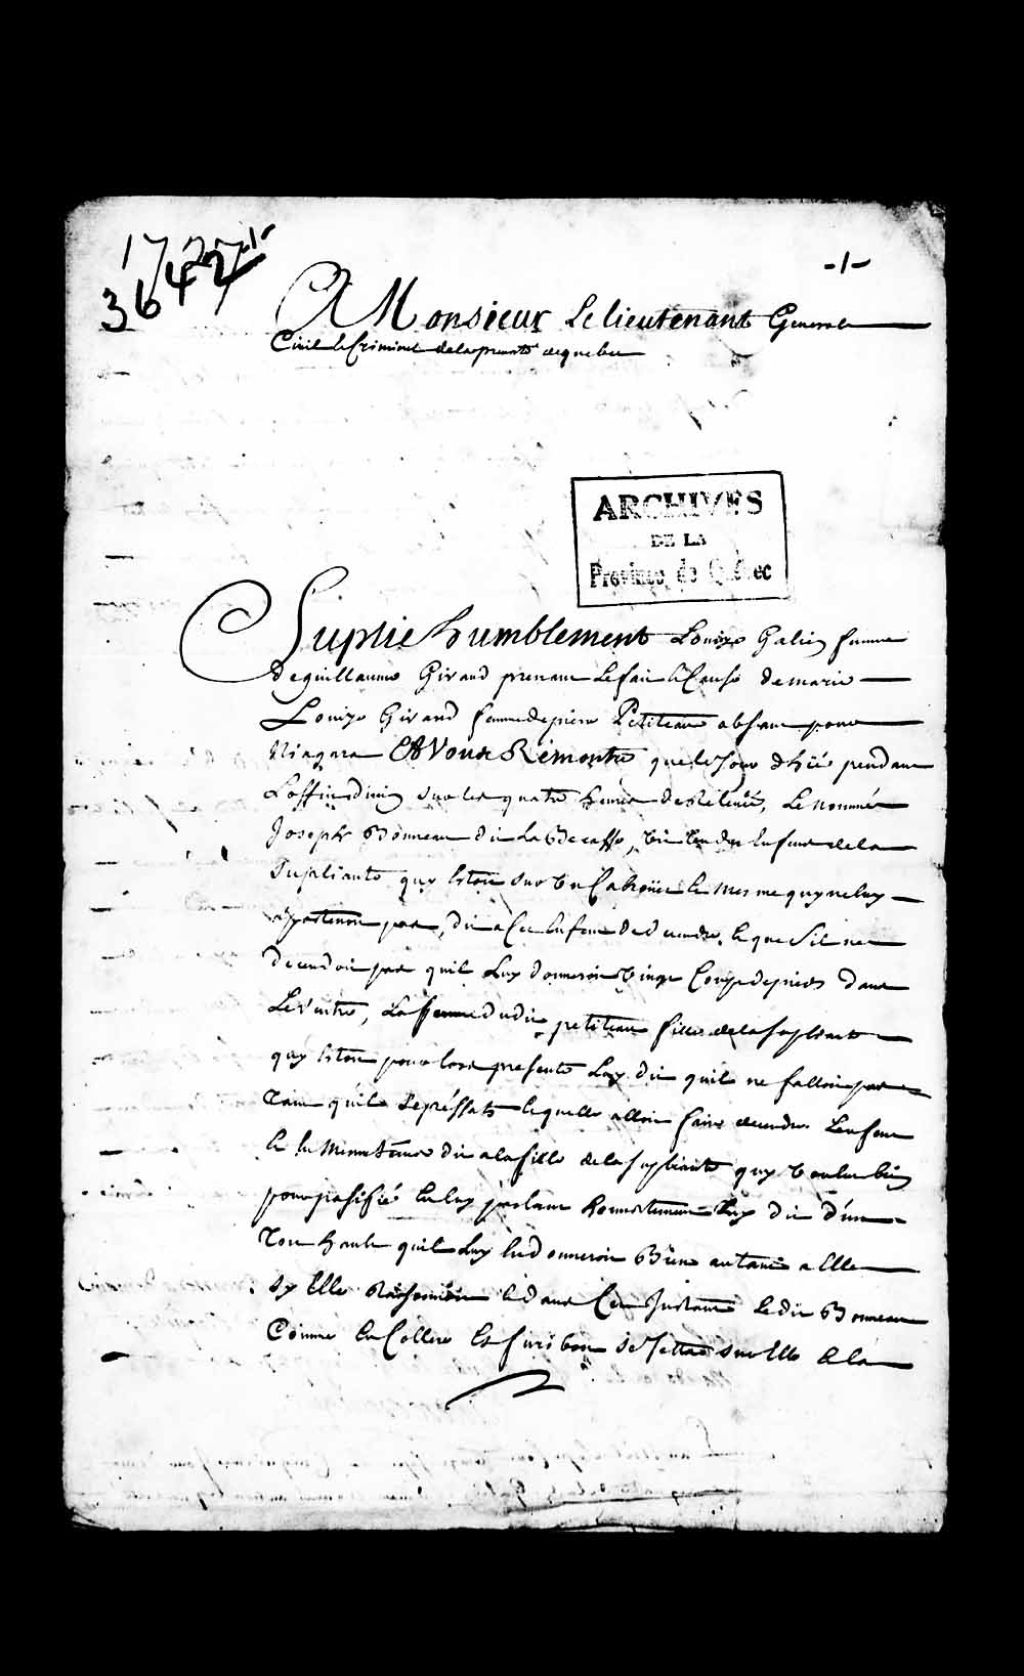 1727 -1-
3642
-1-
A Monsieur Le lieutenant General
Civil et Criminel de la prevosté de quebec
ARCHIVES
DE LA
Province de Québec
Suplie humblement Louize Galien femme
de guillaume Girard prenant le fait et Cause de marie
Louize Girard femme de piere Petiteau absent pour
Niagara Et Vous Remontre que le Jour d'hié pendant
L'offi divin sur les quatre heures de Relevée, Le nommé
Joseph Bonneau dit La Becasse, un enfant de la
Supliante quy Estoit sur un Cabroüet le mesme quy ne luy
apartenoit pas, dit a Cet enfant de decendre, et que Sil ne
decendoit pas quil Luy donneroit vingt Coups de pieds dans
Le ventre, La femme dudit petiteau fille de la supliante
quy Estoit pour lors presente Luy dit quil ne falloit pas
tant quil se préssats et quelle alloit faire decendre Lenfant
et en mesme tems dit a la fille de la supliante quy vouloit bien
pour pasifié en luy parlant honnestement Luy dit d'un
ton hault quil Luy en donneroit Bien autant a Elle
sy Elle Raisonnoit et dans Cet Instant le dit Bonneau
Comme en Collere Et furibon se Jetta sur Elle et la